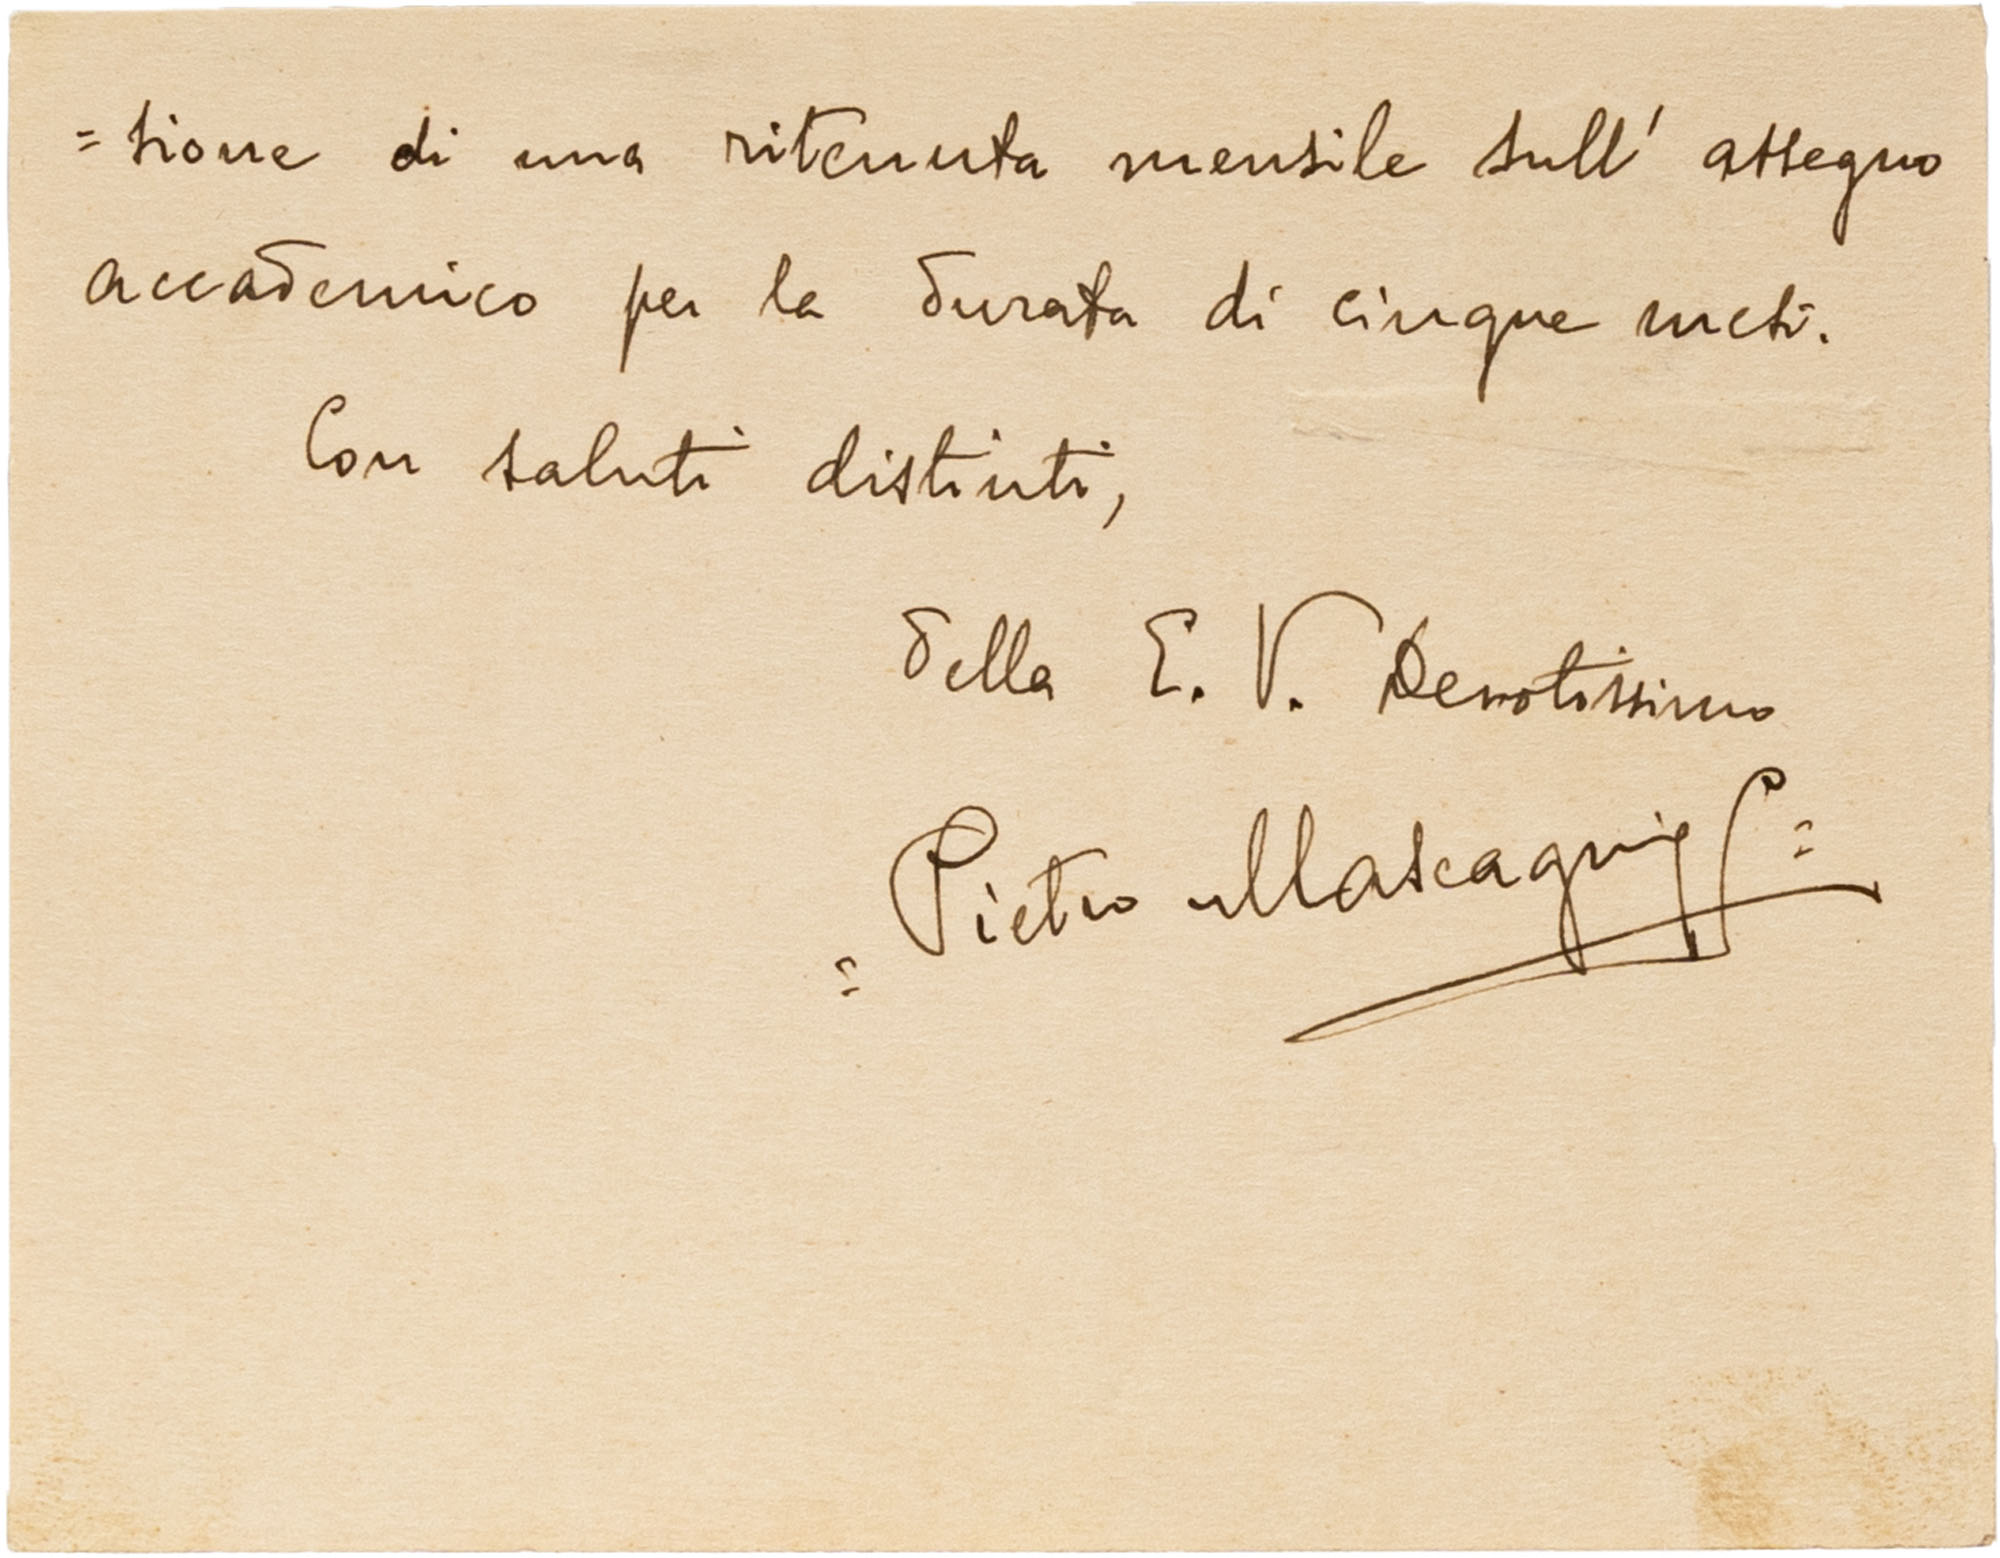 =sione di una ritenuta mensile sull' assegno
accademico per la durata di cinque mesi.
Con saluti distinti,
della E. V. Devotissimo
= Pietro Mascagni =